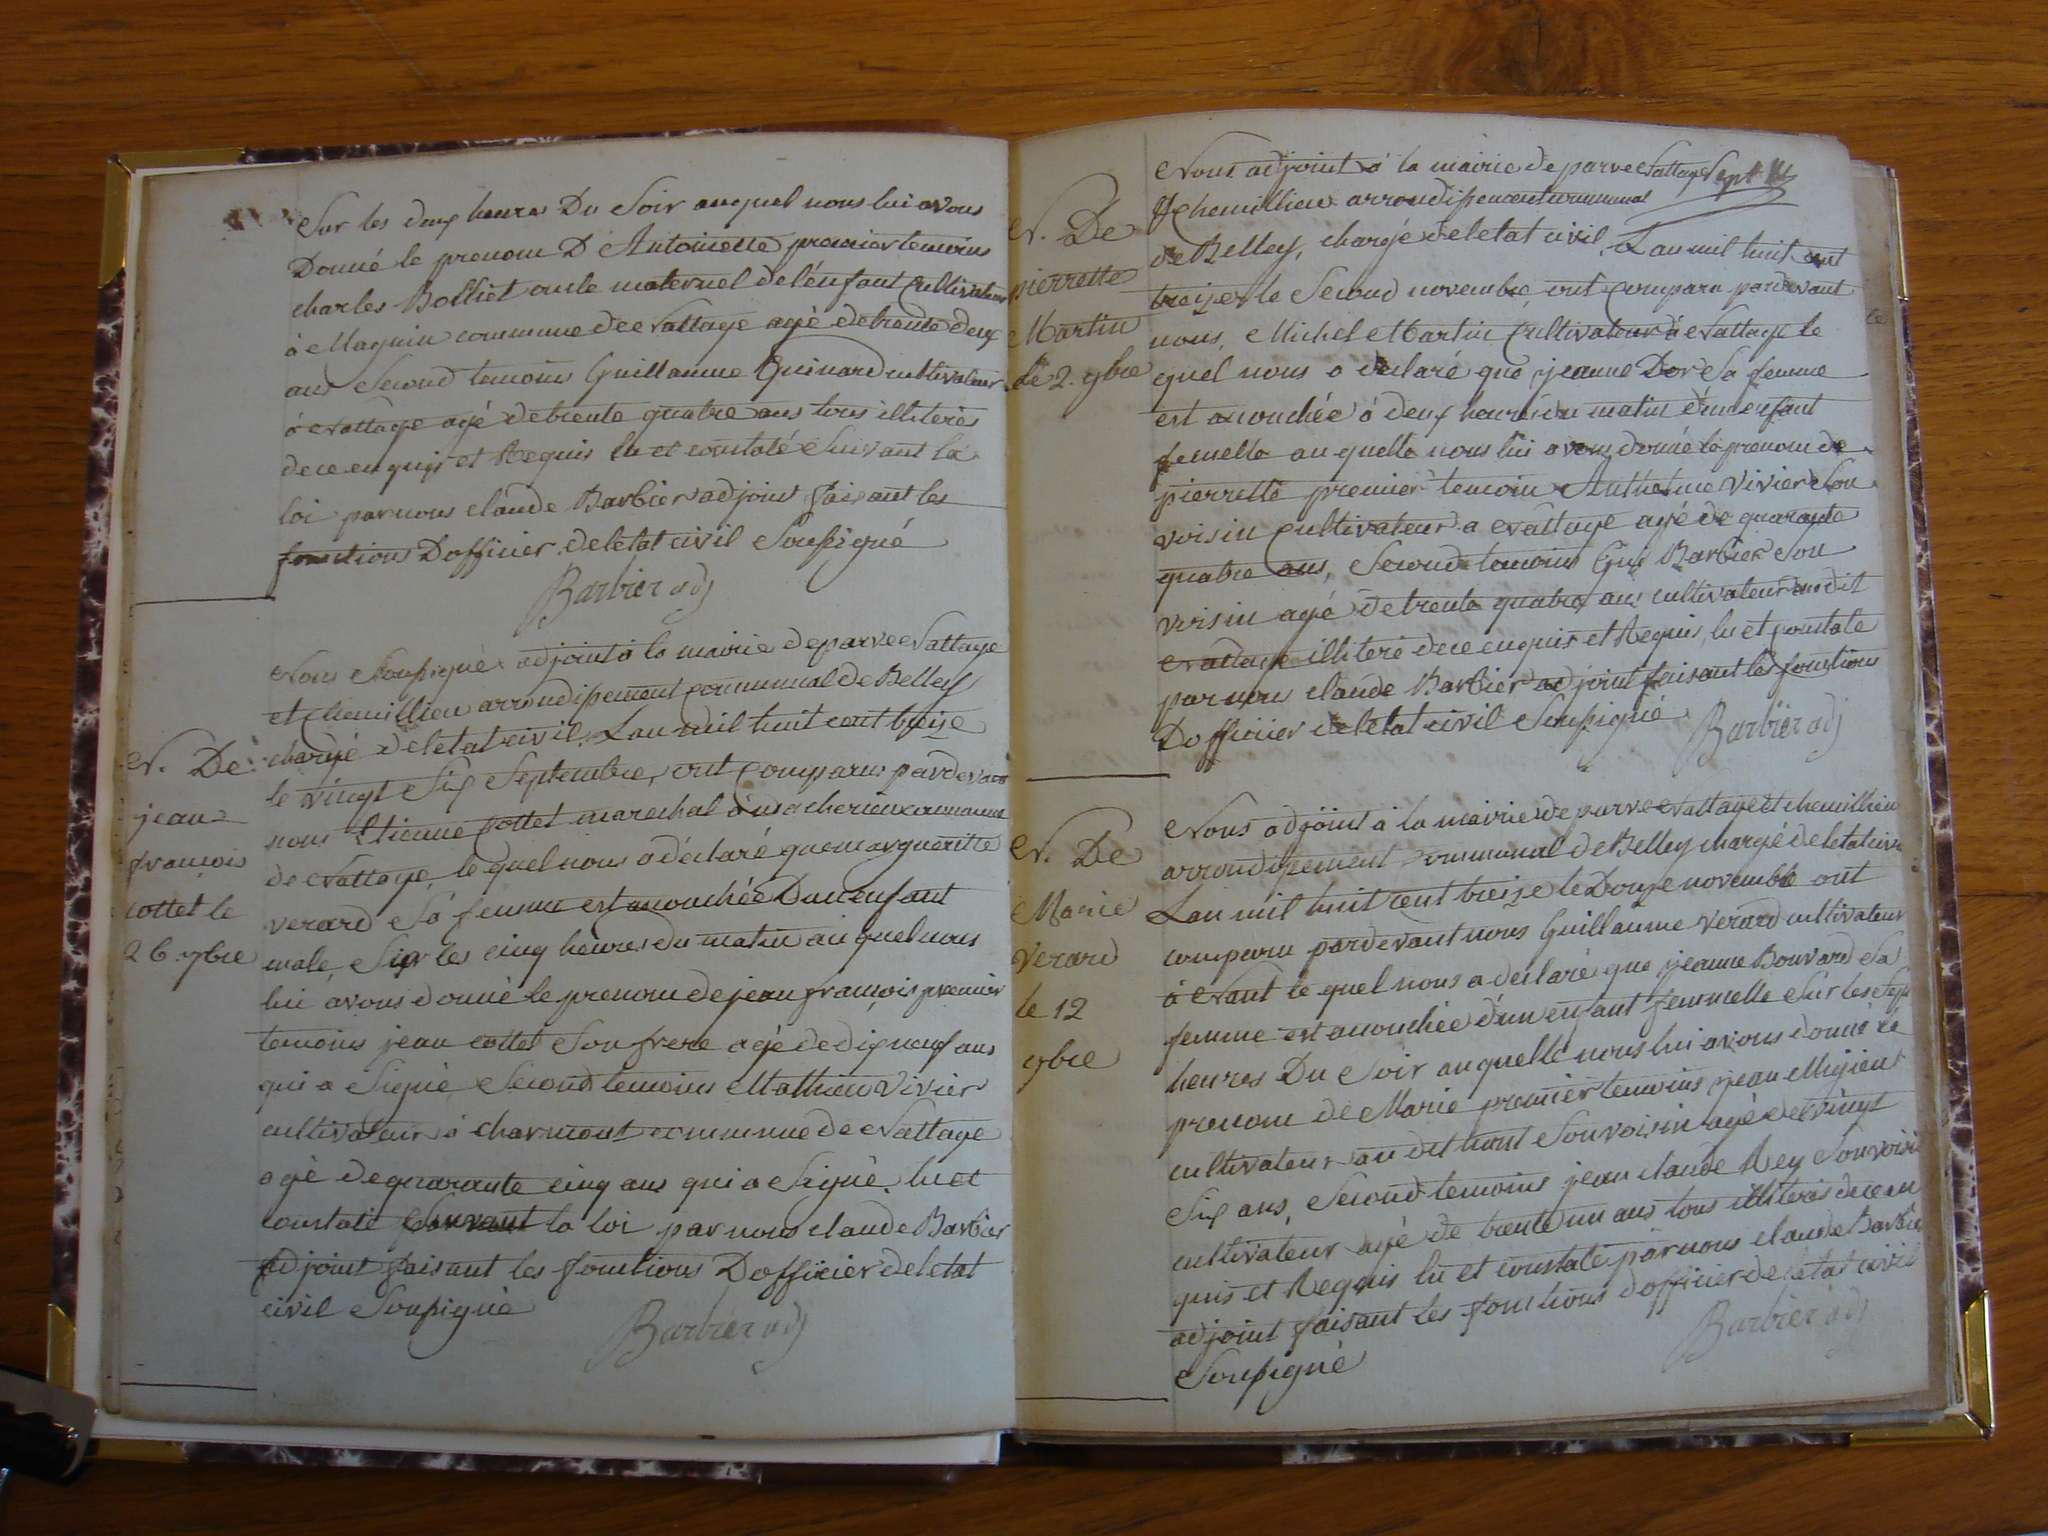 Sur les deux heures Du Soir auquel nous lui avons
Donné le prenom D'Antoinette premier temoins
charles Bolliet oncle maternel de lénfant Cultivateur
à Magnin commune de Nattage agé de trente deux
ans Second temoins Guillaume Guinard cultivateur
à Nattage agé de trente quatre ans tous illiterés
de ce enquis et Requis lu et constaté Suivant la
loi par nous claude Barbier adjoint faisant les
fonctions Dofficier de letat civil Soussigné
Barbier adj
Nous Soussigné adjoint à la mairie de parve Nattage
et Chemillieu arrondissement communal de Belley
chargé de letat civil. Lan mil huit cent treize
le vingt Six Septembre, ont comparus pardevant
nous Etienne Cottet marechal à commune
de Nattage, le quel nous a déclaré que margueritte
verard Sa femme est accouchée Dun enfant
male, Sur les cinq heures du matin auquel nous
lui avons donné le prenom de jean françois premier
temoins jean cottet Son frere agé de dixneuf ans
qui a Signé Second temoins Mathieu Vivier
cultivateur à charmont commune de Nattage
agé de quarante cinq ans qui a Signé, lu et
constaté Suivant la loi par nous claude Barbier
adjoint faisant les fonctions Dofficier de letat
civil Soussigné
Barbier adj
N. De
jean
françois
cottet le
26. 7bre
Nous adjoint à la mairie de parve Nattage
& Chemillieu arrondissement communal
de Belley, chargé de letat civil, Lan mil huit cent
treize, le Second novembre, ont comparu pardevant
nous, Michel Martin Cultivateur à Nattage le
quel nous a déclaré que jeanne Dor Sa femme
est accouchée à deux heures du matin dun enfant
femelle au quelle nous lui avons donné le prenom de
pierrette premier temoin Anthelme Vivier Son
voisin cultivateur a Nattage agé de quarante
quatre ans, Second temoins Gui Barbier Son
voisin agé de trente quatre ans cultivateur audit
Nattage illiteré de ce enquis et Requis, lu et constaté
par nous claude Barbier adjoint faisant les fonctions
Dofficier de letat civil Soussigné
Barbier adj
N. De
pierrette
Martin
le 2. 9bre
Nous adjoint à la mairie de parve Nattage et chemillieu
arrondissement communal de Belley chargé de letat civil
Lan mil huit cent treize le Douze novembre ont
comparu pardevant nous Guillaume Verard cultivateur
à Nant le quel nous a declaré que jeanne Bouvard Sa
femme est accouchée d'un enfant femmelle Sur les Sept
heures Du Soir au quelle nous lui avons donné le
prenom de Marie premier temoins jean Migient
cultivateur au dit nant Son voisin agé de vingt
Six ans, Second temoins jean claude Rey Son voisin
cultivateur agé de trente un ans tous illiterés de ce en
quis et Requis lu et constaté par nous claude Barbier
adjoint faisant les fonctions dofficier de letat civil
Soussigné
Barbier adj
N. De
Marie
Verard
le 12
9bre